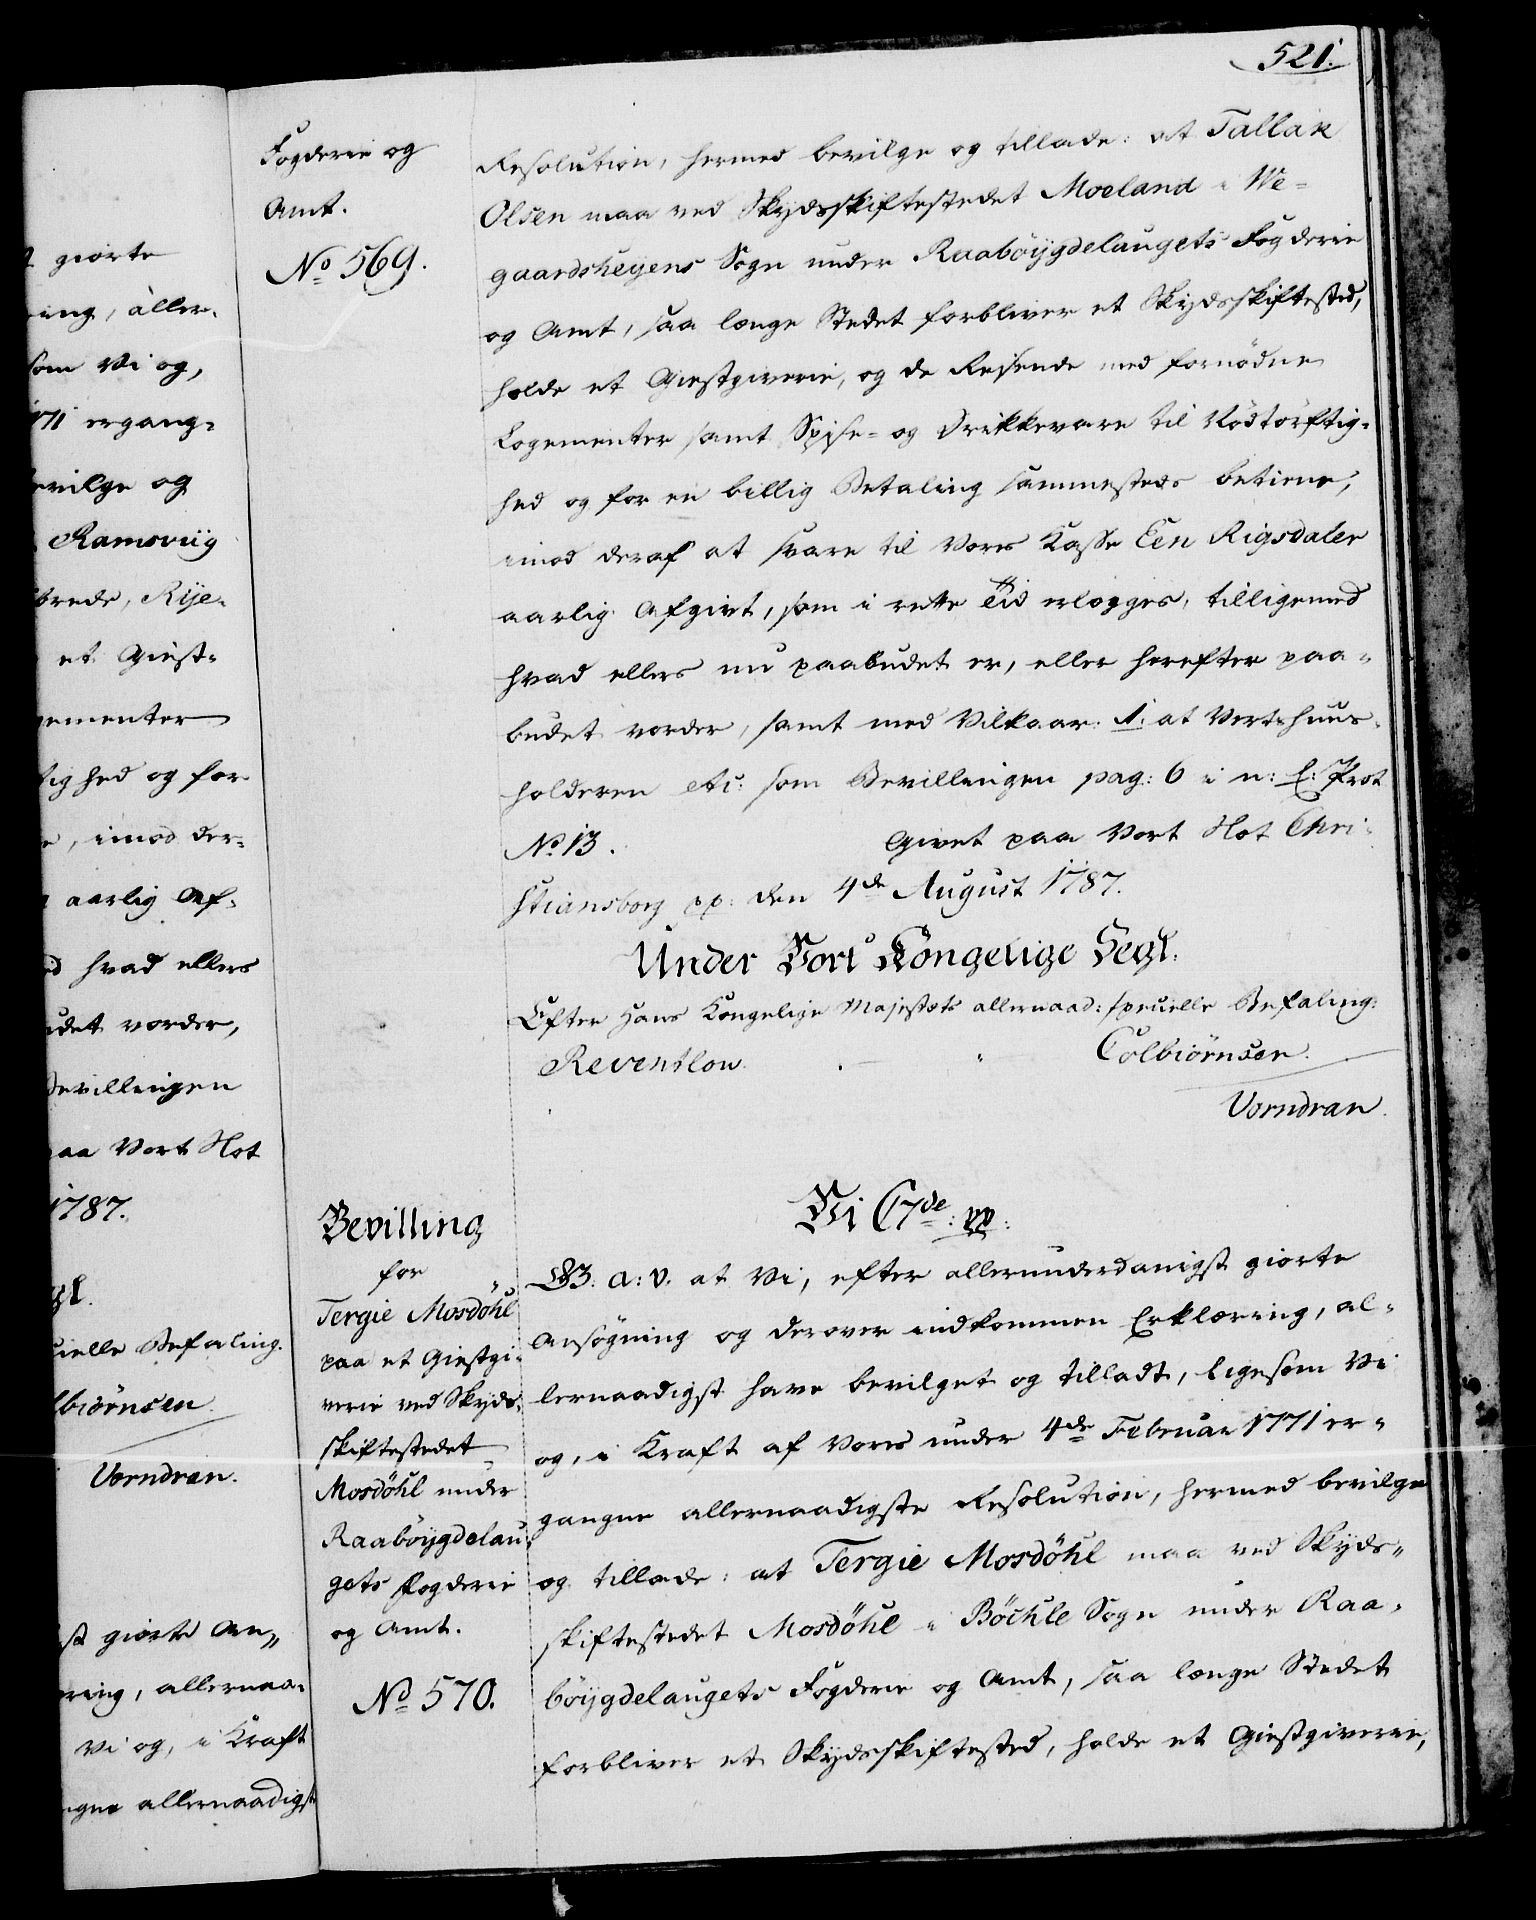 521.
giorte
ing, aller-
som Vi og,
1771 ergang-
bevilge og
Ramsviig
brede, Rije-
et Giest-
gementer
tighed og for
, imod der-
aarlig Af-
hvad ellers
budet vorder,
Bevillingen
paa Vort Slot
1787.
gl.
cielle Befaling.
lbiörnsen.
Vorndran.
st giorte An-
ring, allernaa-
Vi og, i Kraft
ngne allernaadigst
Fogderie og
Amt.
No 569.
Resolution, hermed bevilge og tillade: at Tallak
Olsen maa ved Skydsskiftestedet Moeland i We-
gaardsheyens Sogn under Raaböygdelaugets Fogderie
og Amt, saa længe Stedet forbliver et Skydsskiftested,
holde et Giestgiverie, og de Reisende med fornödne
Logementer samt Spise- og Drikkevare til Nödtörftig-
hed og for en billig Betaling sammesteds betiene,
imod deraf at svare til Vores Kasse Een Rigsdaler
aarlig Afgivt, som i rette Tiid erlægges, tilligemed
hvad ellers nu paabudet er, eller herefter paa-
budet vorder, samt med Vilkaar: 1. at Vertshuus-
holderen etc: som Bevillingen pag: 6 i n: L: Prot
No 13. Givet paa Vort Slot Chri-
stiansborg pp: den 4de August 1787.
Under Vort Kongelige Segl.
Efter Hans Kongelige Majestæts allernaad: specielle Befaling:
Reventlow. Colbiörnsen.
Vorndran.
Bevilling
for
Tergie Mosdöhl
paa et Giestgi-
verie ved Skyds-
skiftestedet
Mosdöhl under
Raaböygdelau-
gets Fogderie
og Amt.
No 570.
Vi C7de: pp:
G: a: v. at Vi, efter allerunderdanigst giorte
Ansögning og derover indkommen Erklæring, al-
lernaadigst have bevilget og tilladt, ligesom Vi
og, i Kraft af Vores under 4de Februar 1771 er-
gangne allernaadigste Resolution, hermed bevilge
og tillade: at Tergie Mosdöhl maa ved Skyds-
skiftestedet Mosdöhl i Böchle Sogn under Raa-
böygdelaugets Fogderie og Amt, saa længe Stedet
forbliver et Skydsskiftested, holde et Giestgiverie,